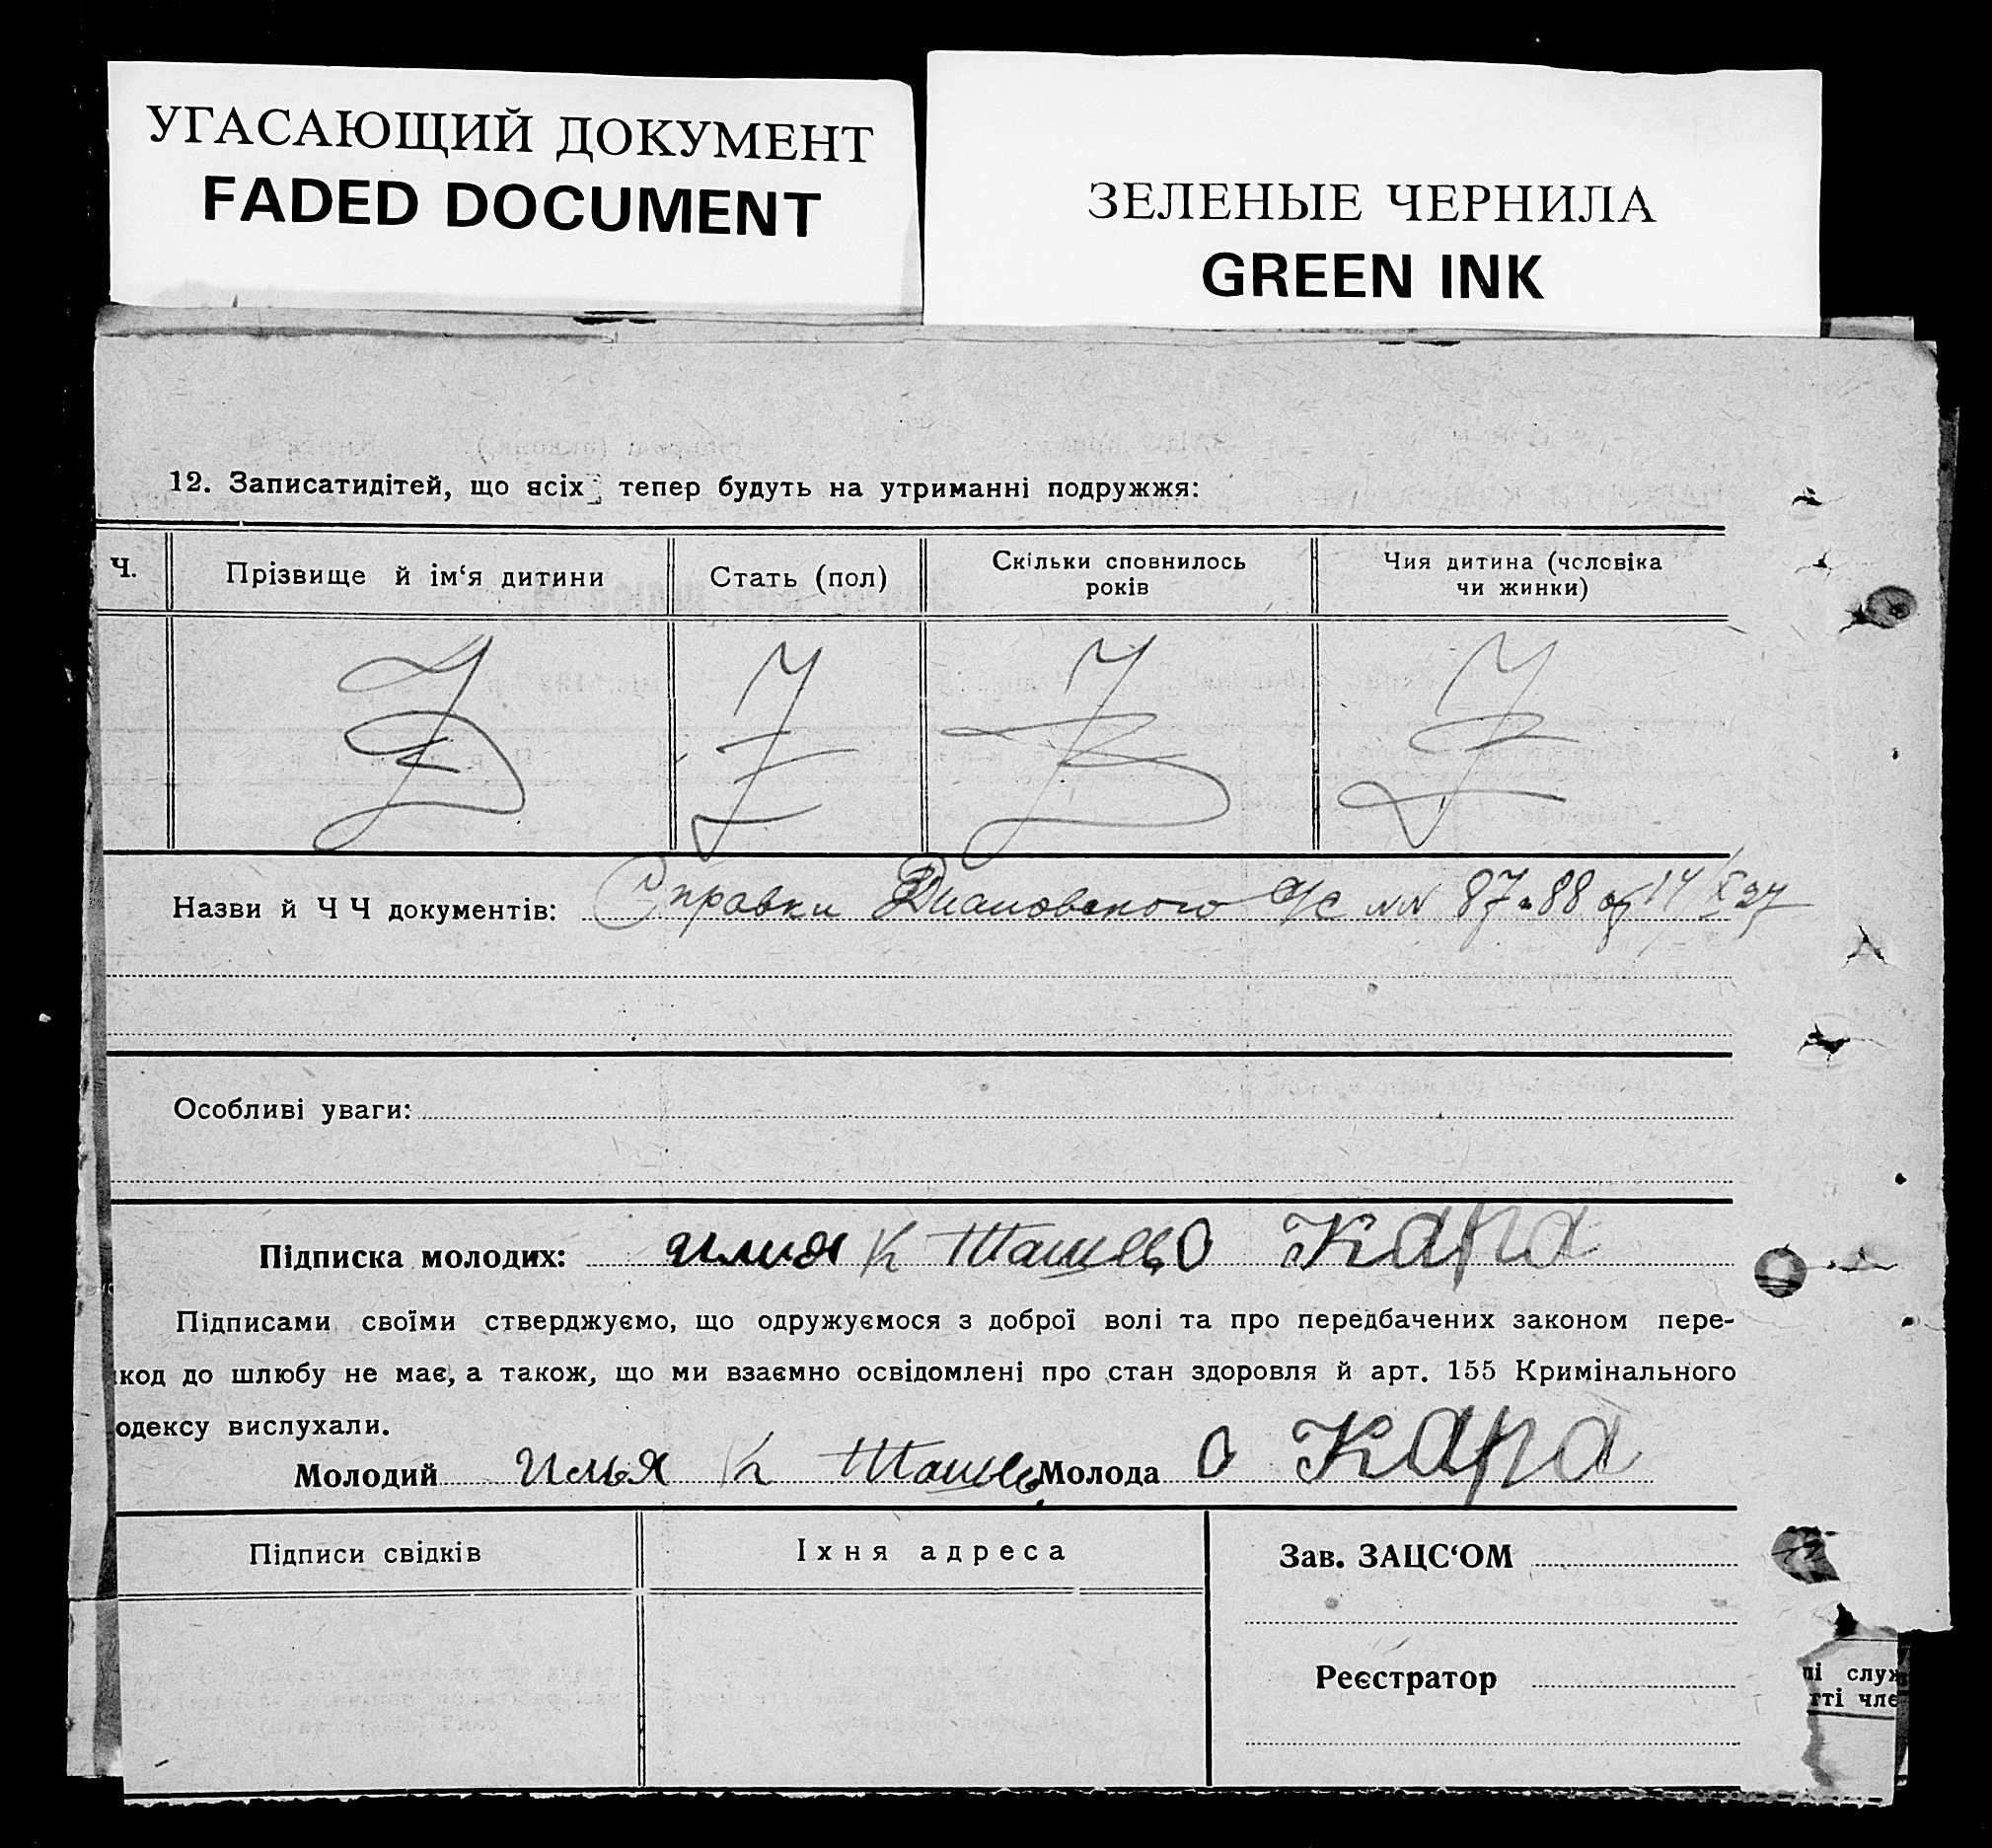 УГАСАЮЩИЙ ДОКУМЕНТ
FADED DOCUMENT
ЗЕЛЕНЫЕ ЧЕРНИЛА
GREEN INK
12. Записатидітей, що всіх тепер будуть на утриманні подружжя:
Ч.
Прізвище й ім‘я дитини
Стать (пол)
Скільки сповнилось
років
Чия дитина (чоловіка
чи жинки)
Назви й Ч Ч документів: Справки с/с NN 87-88 от 14/X 27
Особливі уваги:
Підписка молодих: илия К О Капа
Підписами своїми стверджуємо, що одружуємося з доброї волі та про передбачених законом пере-
код до шлюбу не має, а також, що ми взаємно освідомлені про стан здоровля й арт. 155 Кримінального
одексу вислухали.
Молодий Илья К Молода О Капа
Підписи свідків
Іхня адреса
Зав. ЗАЦС‘ОМ
Реєстратор
і служ
тті чле